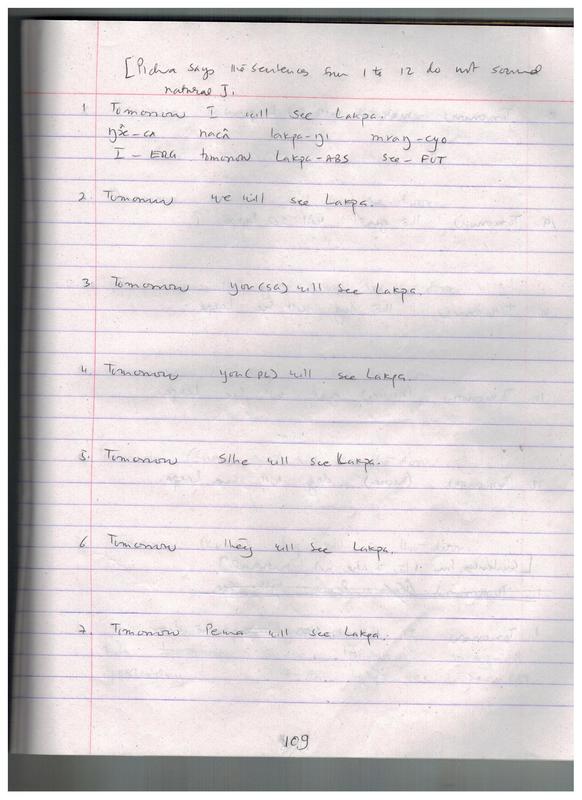 [Pidza says the sentences from 1 to 12 do not sound
natural].
1 Tomorrow I will see Lakpa.
nacâ lakpa-ŋi mraŋ-cyo
I - ERG tomorrow Lakpa-ABS see - FUT
2. Tomorrow we will see Lakpa.
3. Tomorrow you(SG) will see Lakpa.
4. Tomorrow you(PL) will see Lakpa.
5. Tomorrow S/he will see Lakpa.
6. Tomorrow they will see Lakpa.
7. Tomorrow Pema will see Lakpa.
109